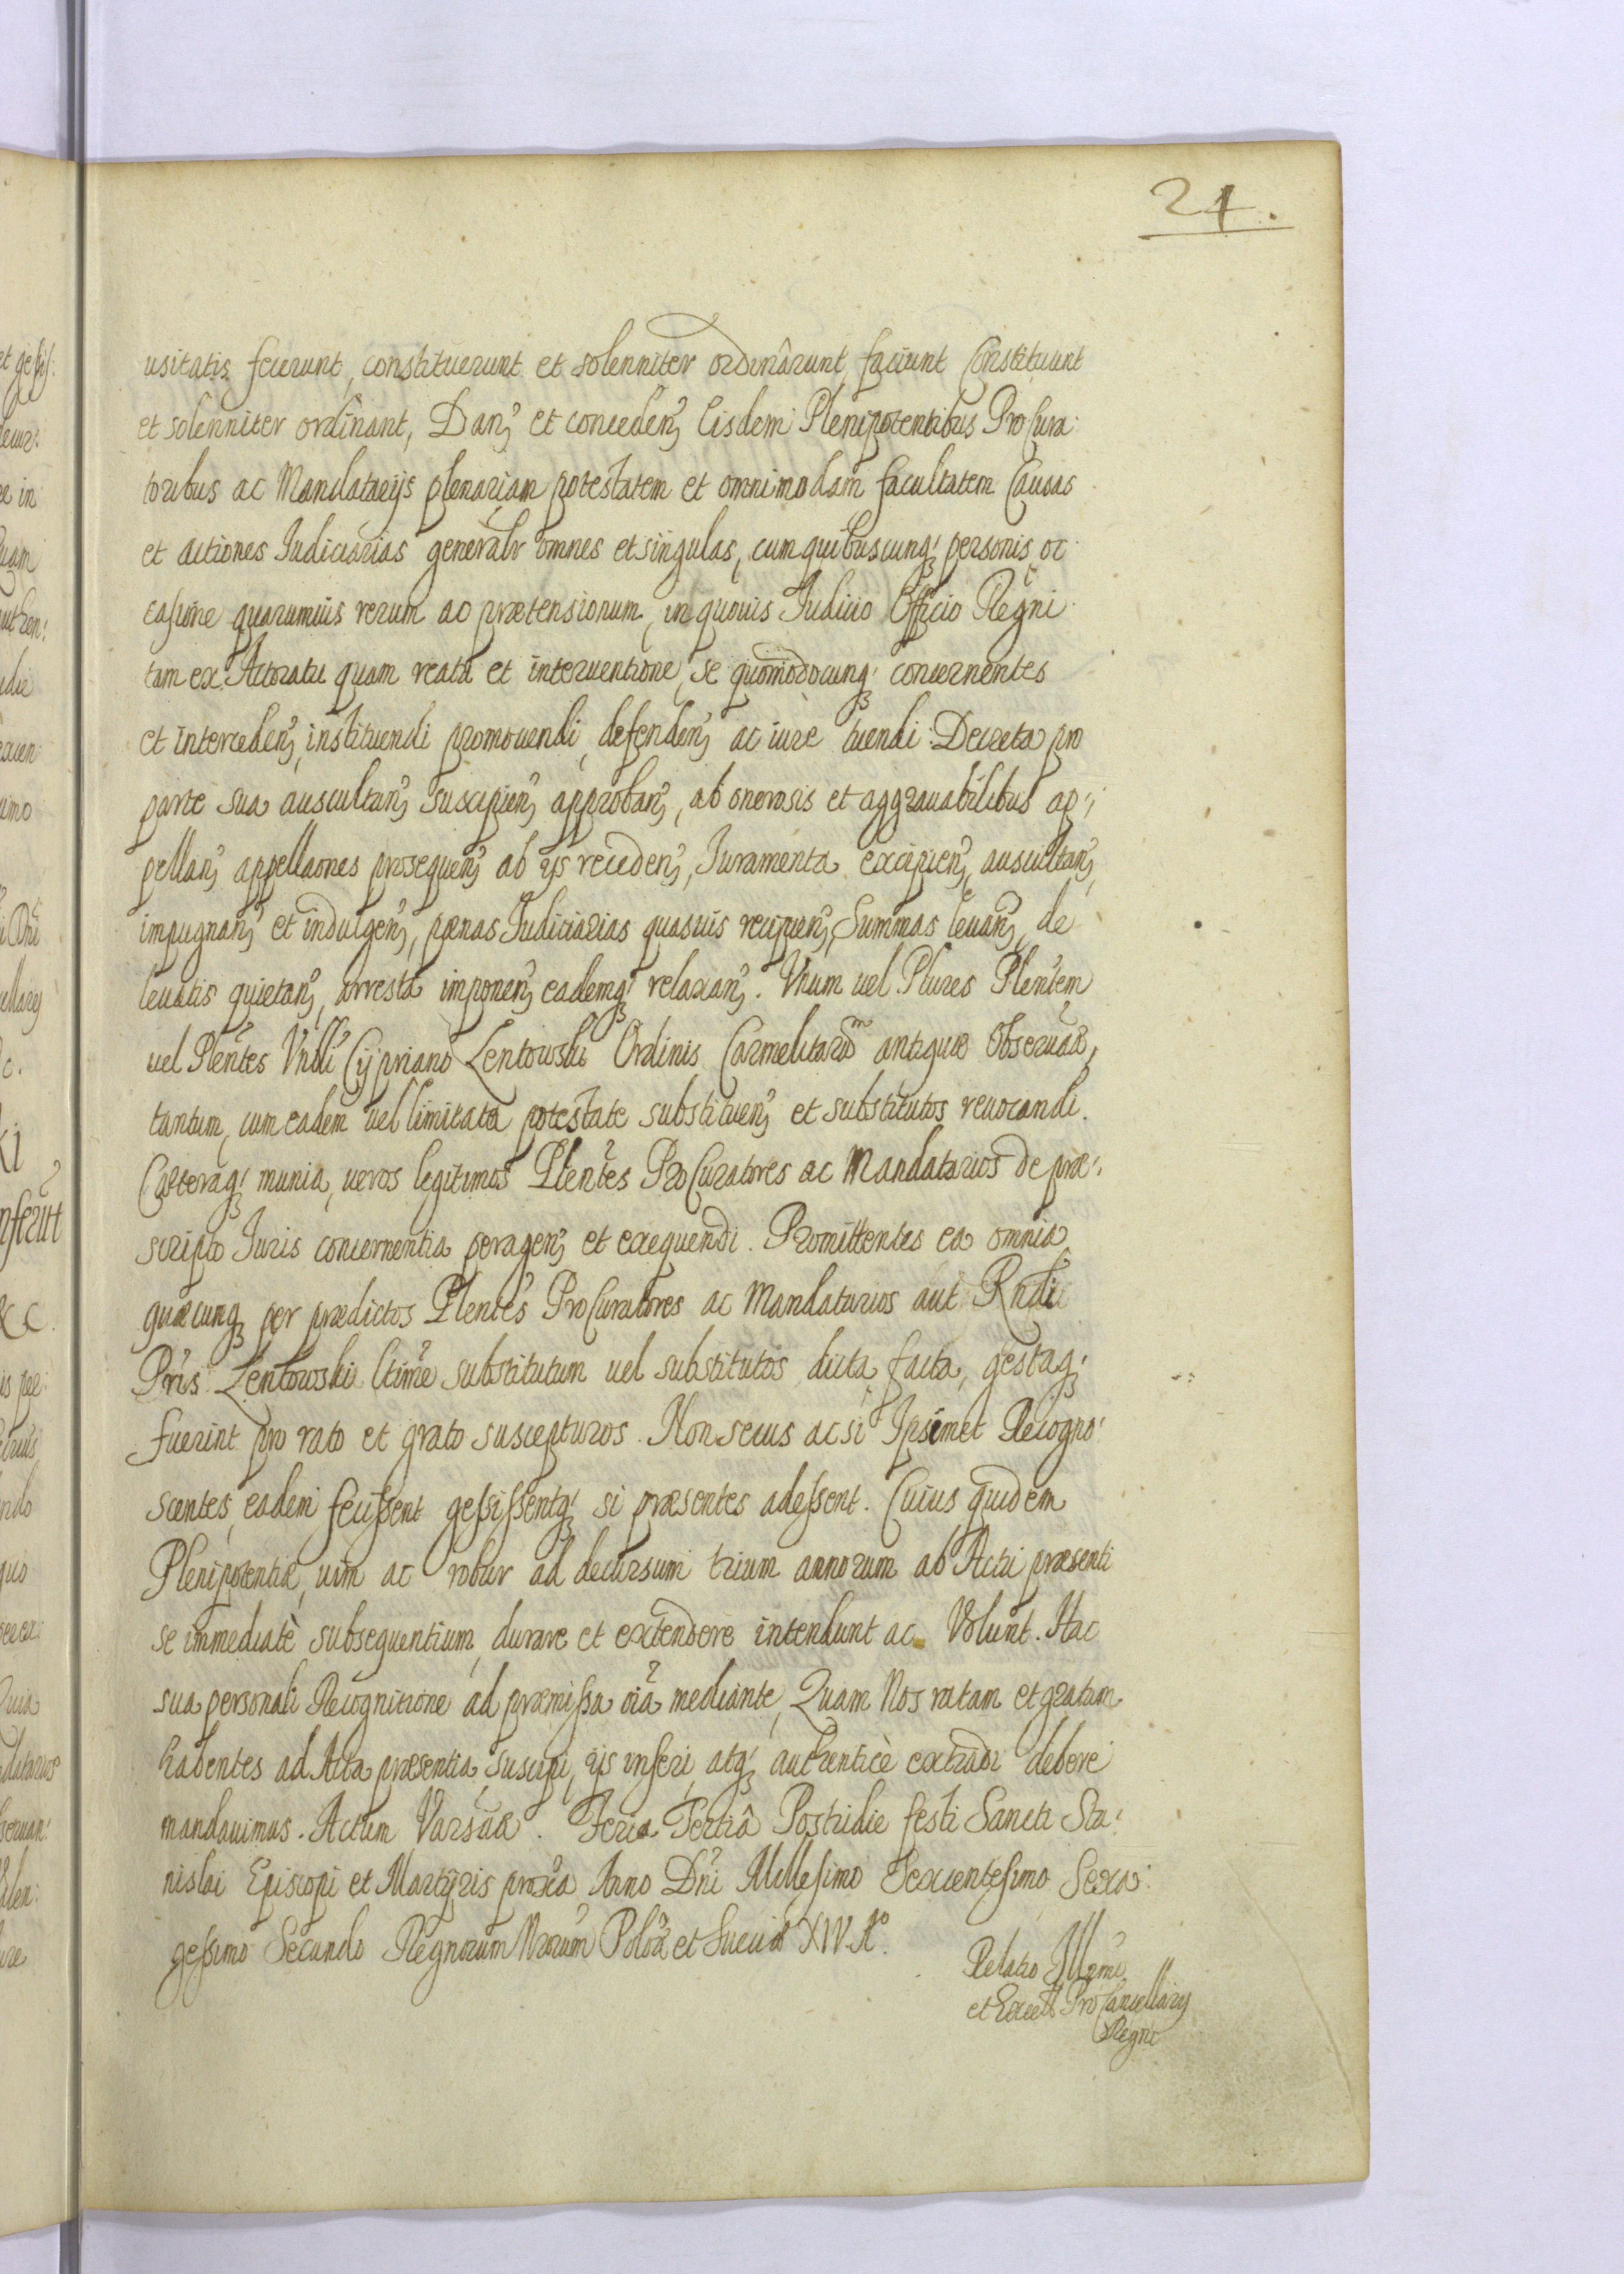 21.
usitatis fecerunt, constituerunt et solenniter ordinârunt, faciunt Constituunt
et solenniter ordinant, Danʒ et concedenʒ Eisdem Plenipotentibus ProCura:
toribus ac Mandatarijs plenariam potestatem et omnimodam facultatem Causas
et actiones Iudiciarias generalr omnes et singulas, cum quibuscunqʒ personis, oc
casione quarumuis rerum ac prætensionum, in quouis Iudicio Officio Regni
tam ex Actoratu quam reatu et interuentione, se quomodocunqʒ concernentes
et intercedenʒ, instituendi promouendi, defendenʒ ac iure tuendi: Decreta pro
parte sua auscultanʒ suscipienʒ approbanʒ, ab onerosis et aggrauabilibus ap:
pellanʒ appellaones prosequenʒ ab ijs recedenʒ, Iuramenta excipienʒ, auscultanʒ,
impugnanʒ et indulgenʒ, pœnas Iudiciarias quasuis recipienʒ, Summas leuanʒ, de
leuatis quietanʒ, arresta imponenʒ eademqʒ relaxanʒ. Vnum uel Plures Plentem
uel Plentes Vndli Cÿpriano Lentowski Ordinis Carmelitarum antiquæ Obseruaæ,
tantum, cum eadem uel limitata potestate substituenʒ et substitutos reuocandi.
Cæteraqʒ munia, ueros legitimos Plentes ProCuratores ac Mandatarios de præ:
scripto Iuris concernentia peragenʒ et exequendi. Promittentes ea omnia
quæcunqʒ per prædictos Plentes ProCuratores ac Mandatarios aut Rndi
Pris Lentowski ltime substitutum uel substitutos dicta, facta, gestaqʒ
fuerint pro rato et grato suscepturos. Non secus ac si Ipsimet Recogno:
scentes, eadem fecissent gessissentqʒ si præsentes adessent. Cuius quidem
Plenipotentiæ, uim ac robur ad decursum trium annorum ab Actu præsenti
se immediatè subsequentium, durare et extendere intendunt ac Volunt. Hac
sua personali Recognitione ad præmissa oia mediante, Quam Nos ratam et gratam
habentes ad Acta præsentia, suscipi, ijs inseri, atqʒ authenticè extradi debere
mandauimus. Actum Varsuæ. Feria Tertiâ Postridie festi Sancti Sta:
nislai Episcopi et Martÿris proxa Anno Dni Millesimo Sexcentesimo Sexa:
gessimo Secundo Regnorum Nrorum Poloæ et Sueciæ XIV. Ao.
Relatio Illmi
et Excell ProCancellarij
Regni